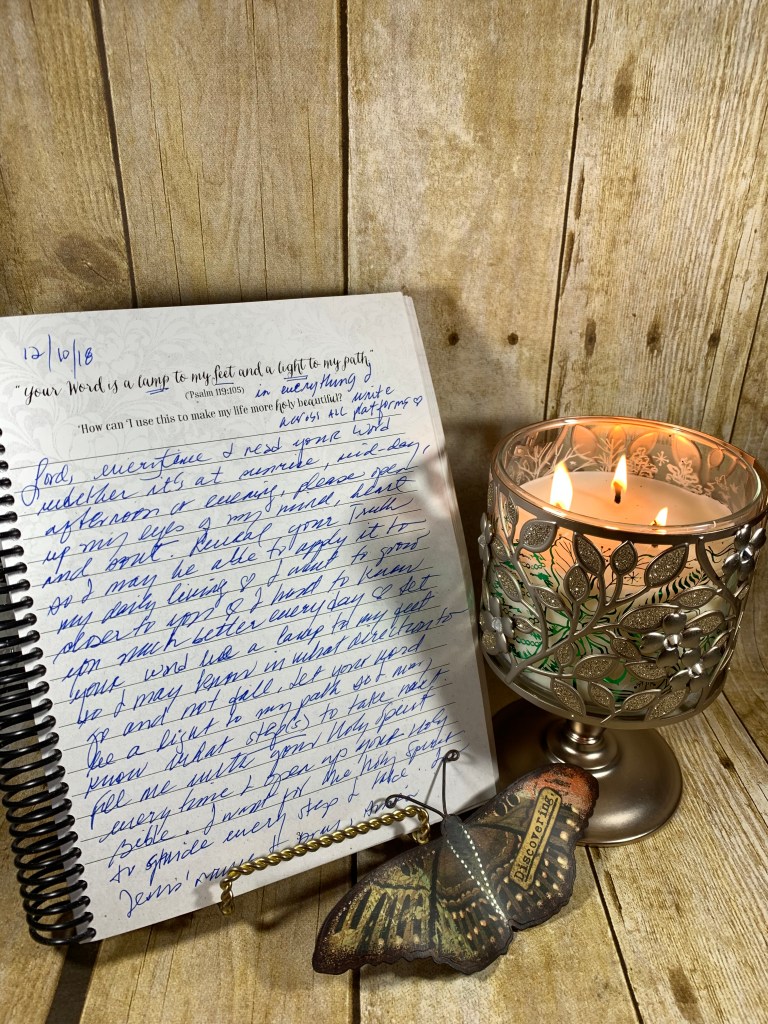 12/10/18
"Your Word is a lamp to my feet and a light to my path"
(Psalm 119:105)
in everything I
'How can I use this to make my life more holy beautiful?
write
across all platforms ♡
Lord, everytime I read your word
whether it's at sunrise, mid-day,
afternoon or evening, please open
up my eyes of my mind, heart
and soul. Reveal your Truth
so I may be able to apply it to
my daily living ♡ I want to grow
closer to you ♡ I want to know
you much better every day ♡ Let
your word be a lamp to my feet
so I may know in what direction to
go and not fall. Let your word
be a light to my path so I may
know what step(s) to take next
Fill me with your Holy Spirit
every time I open up your Holy
Bible. I want for the Holy Spirit
to guide every step I take.
Jesus' name I pray,
Discovering,